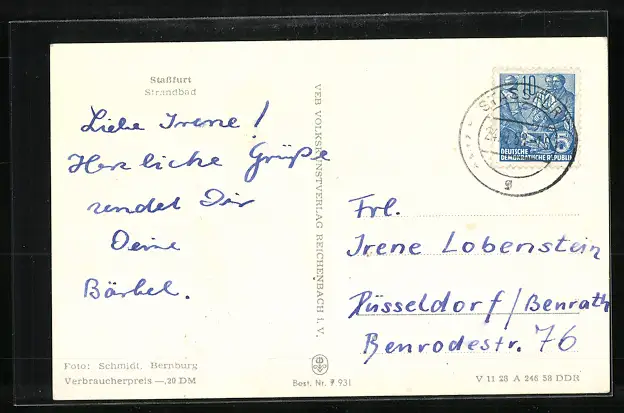 Staßfurt
Strandbad
Liebe Irene!
Herzliche Grüße
sendet Dir
Deine
Bärbel.
Foto: Schmidt, Bernburg
Verbraucherpreis —,20 DM
VEB VOLKSKUNSTVERLAG REICHENBACH i. V.
Best. Nr. F 931
STASSFURT
10
5
DEUTSCHE
DEMOKRATISCHE REPUBLIK
Frl.
Irene Lobenstein
Düsseldorf/Benrath
Benrodestr. 76
V 11 28 A 246 58 DDR